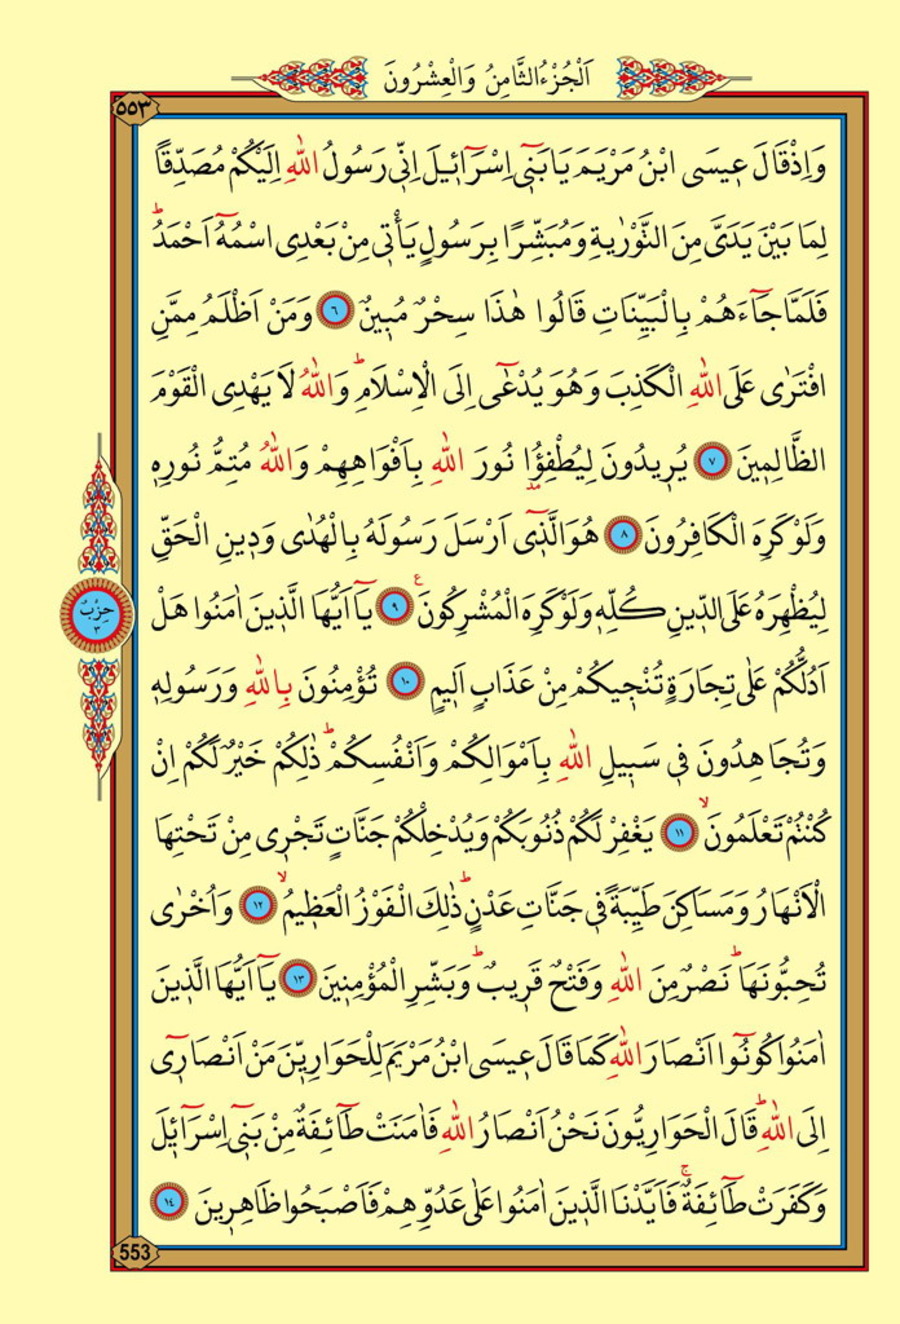 اَلْجُزْءُ الثَّامِنُ وَالْعِشْرُونَ
٥٥٣
وَاِذْ قَالَ عٖيسَى ابْنُ مَرْيَمَ يَا بَنٖٓى اِسْرَٓائٖلَ اِنّٖى رَسُولُ اللّٰهِ اِلَيْكُمْ مُصَدِّقًا
لِمَا بَيْنَ يَدَىَّ مِنَ التَّوْرٰيةِ وَمُبَشِّرًا بِرَسُولٍ يَأْتٖى مِنْ بَعْدِى اسْمُهُٓ اَحْمَدُؕ
فَلَمَّا جَٓاءَهُمْ بِالْبَيِّنَاتِ قَالُوا هٰذَا سِحْرٌ مُبٖينٌ ﴿٦﴾ وَمَنْ اَظْلَمُ مِمَّنِ
افْتَرٰى عَلَى اللّٰهِ الْكَذِبَ وَهُوَ يُدْعٰٓى اِلَى الْاِسْلَامِؕ وَاللّٰهُ لَا يَهْدِى الْقَوْمَ
الظَّالِمٖينَ ﴿٧﴾ يُرٖيدُونَ لِيُطْفِؤُ۫ا نُورَ اللّٰهِ بِاَفْوَاهِهِمْ وَاللّٰهُ مُتِمُّ نُورِهٖ
وَلَوْ كَرِهَ الْكَافِرُونَ ﴿٨﴾ هُوَ الَّذٖٓى اَرْسَلَ رَسُولَهُ بِالْهُدٰى وَدٖينِ الْحَقِّ
لِيُظْهِرَهُ عَلَى الدّٖينِ كُلِّهٖ وَلَوْ كَرِهَ الْمُشْرِكُونَ ع ﴿٩﴾ يَٓا اَيُّهَا الَّذٖينَ اٰمَنُوا هَلْ
حِزْبٌ
٣
اَدُلُّكُمْ عَلٰى تِجَارَةٍ تُنْجٖيكُمْ مِنْ عَذَابٍ اَلٖيمٍ ﴿١٠﴾ تُؤْمِنُونَ بِاللّٰهِ وَرَسُولِهٖ
وَتُجَاهِدُونَ فٖى سَبٖيلِ اللّٰهِ بِاَمْوَالِكُمْ وَاَنْفُسِكُمْؕ ذٰلِكُمْ خَيْرٌ لَكُمْ اِنْ
كُنْتُمْ تَعْلَمُونَۙ ﴿١١﴾ يَغْفِرْ لَكُمْ ذُنُوبَكُمْ وَيُدْخِلْكُمْ جَنَّاتٍ تَجْرٖى مِنْ تَحْتِهَا
الْاَنْهَارُ وَمَسَاكِنَ طَيِّبَةً فٖى جَنَّاتِ عَدْنٍؕ ذٰلِكَ الْفَوْزُ الْعَظٖيمُۙ ﴿١٢﴾ وَاُخْرٰى
تُحِبُّونَهَاؕ نَصْرٌ مِنَ اللّٰهِ وَفَتْحٌ قَرٖيبٌؕ وَبَشِّرِ الْمُؤْمِنٖينَ ﴿١٣﴾ يَٓا اَيُّهَا الَّذٖينَ
اٰمَنُوا كُونُٓوا اَنْصَارَ اللّٰهِ كَمَا قَالَ عٖيسَى ابْنُ مَرْيَمَ لِلْحَوَارِيّٖنَ مَنْ اَنْصَارٖٓى
اِلَى اللّٰهِؕ قَالَ الْحَوَارِيُّونَ نَحْنُ اَنْصَارُ اللّٰهِ فَاٰمَنَتْ طَٓائِفَةٌ مِنْ بَنٖٓى اِسْرَٓائٖلَ
وَكَفَرَتْ طَٓائِفَةٌۚ فَاَيَّدْنَا الَّذٖينَ اٰمَنُوا عَلٰى عَدُوِّهِمْ فَاَصْبَحُوا ظَاهِرٖينَ ﴿١٤﴾
553